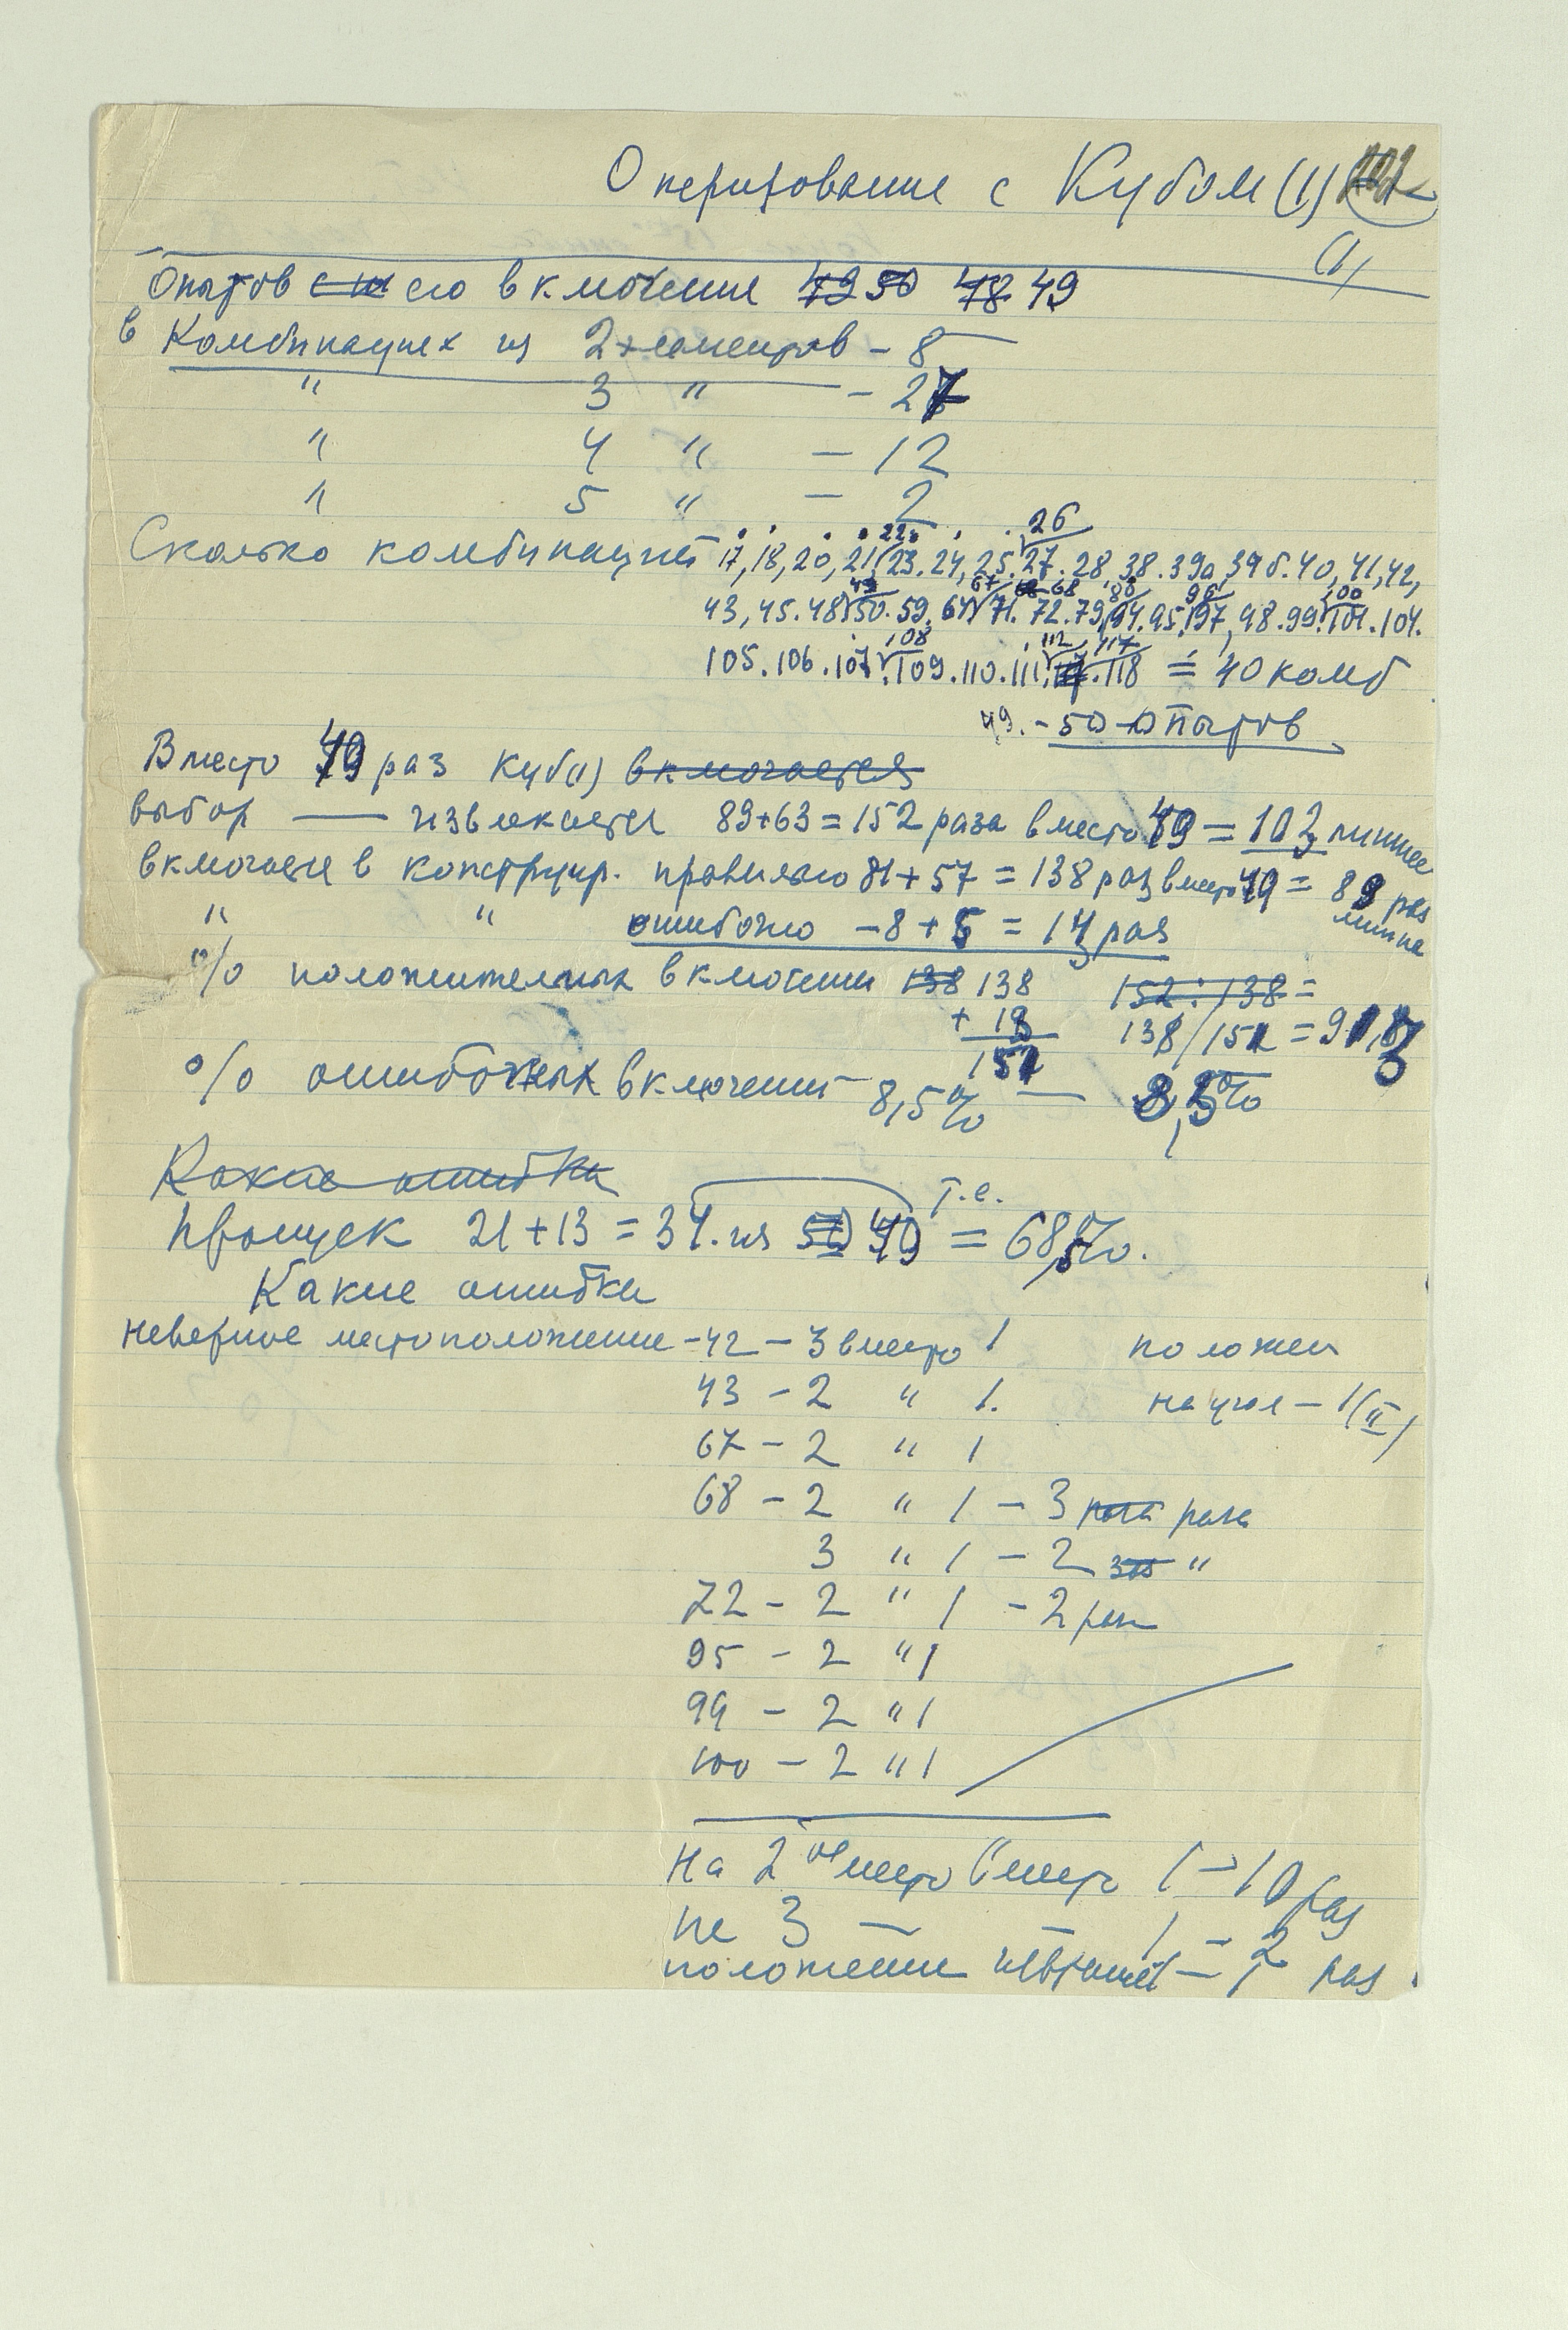 Оперирование с Кубом (1)
(1)
Опытов с его включение 49 50 48 49
в Комбинациях из 2х элементов - 8
" 3 " - 27
" 4 " - 12
" 5 " - 2
Сколько комбинаций 17, 18, 20, 21, 22, 23. 24, 25. 26 27. 28, 38. 39а, 39б. 40, 41, 42,
43, 45. 48 49 50. 59. 64 67 71. 68 72. 79, 80 94. 95 96 97, 98. 99. 100 101. 104.
105. 106. 107 108 109. 110. 111 112 117. 118 = 40 комб
49. - 50 опытов
Вместо 49 раз Куб(1) включается
выбор — извлекается 89+63 = 152 раза вместо 49 = 103 лишнее
включается в конструкр. правильно 81+57 = 138 раз вместо 49 = 89 раз лишне
" " ошибочно - 8 + 6 = 14 раз
% положительных включений 138 138 152 : 138 =
+ 13 138/151 = 91,3
151
% ошибочных включений 8,5% — 8,5%
Какие ошибки
Пропуск 21 + 13 = 34. из 50 49 т.е. = 68,5%.
Какие ошибки
неверное местоположение - 42 - 3 вместо 1 положен
43 - 2 " 1. на угол - 1(II)
67 - 2 " 1
68 - 2 " 1 - 3 раза раза
3 " 1 - 2 "
72 - 2 " 1 - 2 раза
95 - 2 " 1
99 - 2 " 1
100 - 2 " 1
На 2 ое место вместо 1 - 10 раз
не 3 — — 1 - 2
положение - 1 раз